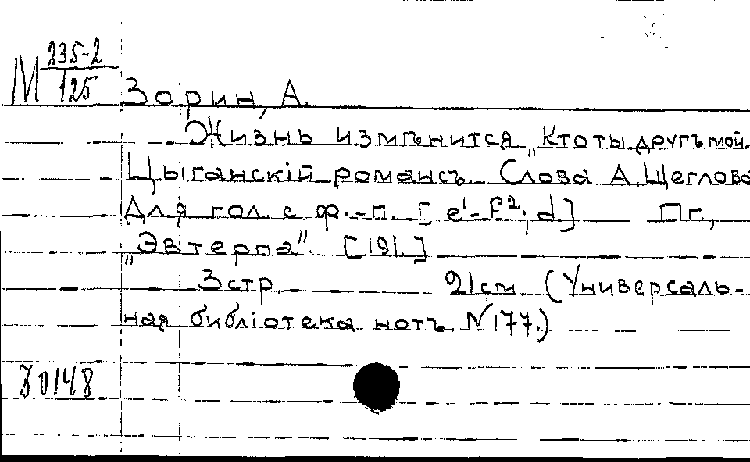 М 235-2
125
Зорин, А.
Жизнь измѣнится „Кто ты другъ мой.
Цыганскій романсъ. Слова А. Щеглова
Для гол. с ф.-п. [e¹-f²; d.] Пг.,
„Эвтерпа". [191.]
3 стр. 21 см (Универсаль-
ная библіотека нотъ N 177.)
70148